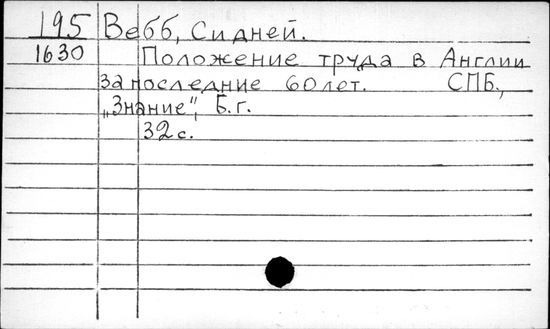 195 Вебб, Сидней.
1630 Положение труда в Англии
за последние 60 лет. СПБ.,
„Знание", Б.г.
32 с.